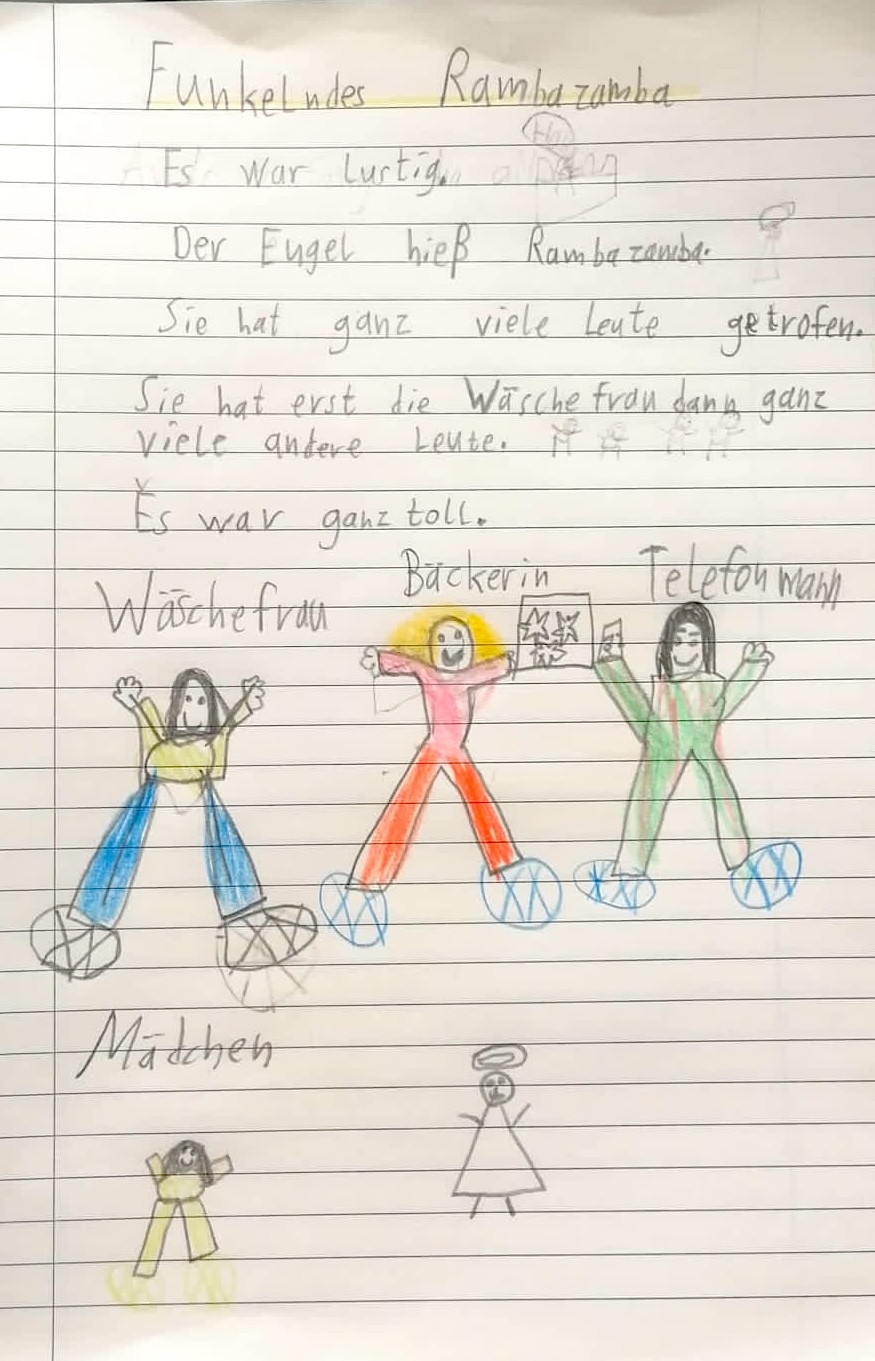 Funkelndes Rambazamba
Es war lustig.
Der Engel hieß Rambazamba.
Sie hat ganz viele Leute getrofen.
Sie hat erst die Wäschefrau dann ganz
viele andere Leute.
Es war ganz toll.
Wäschefrau Bäckerin Telefonmann
Mädchen